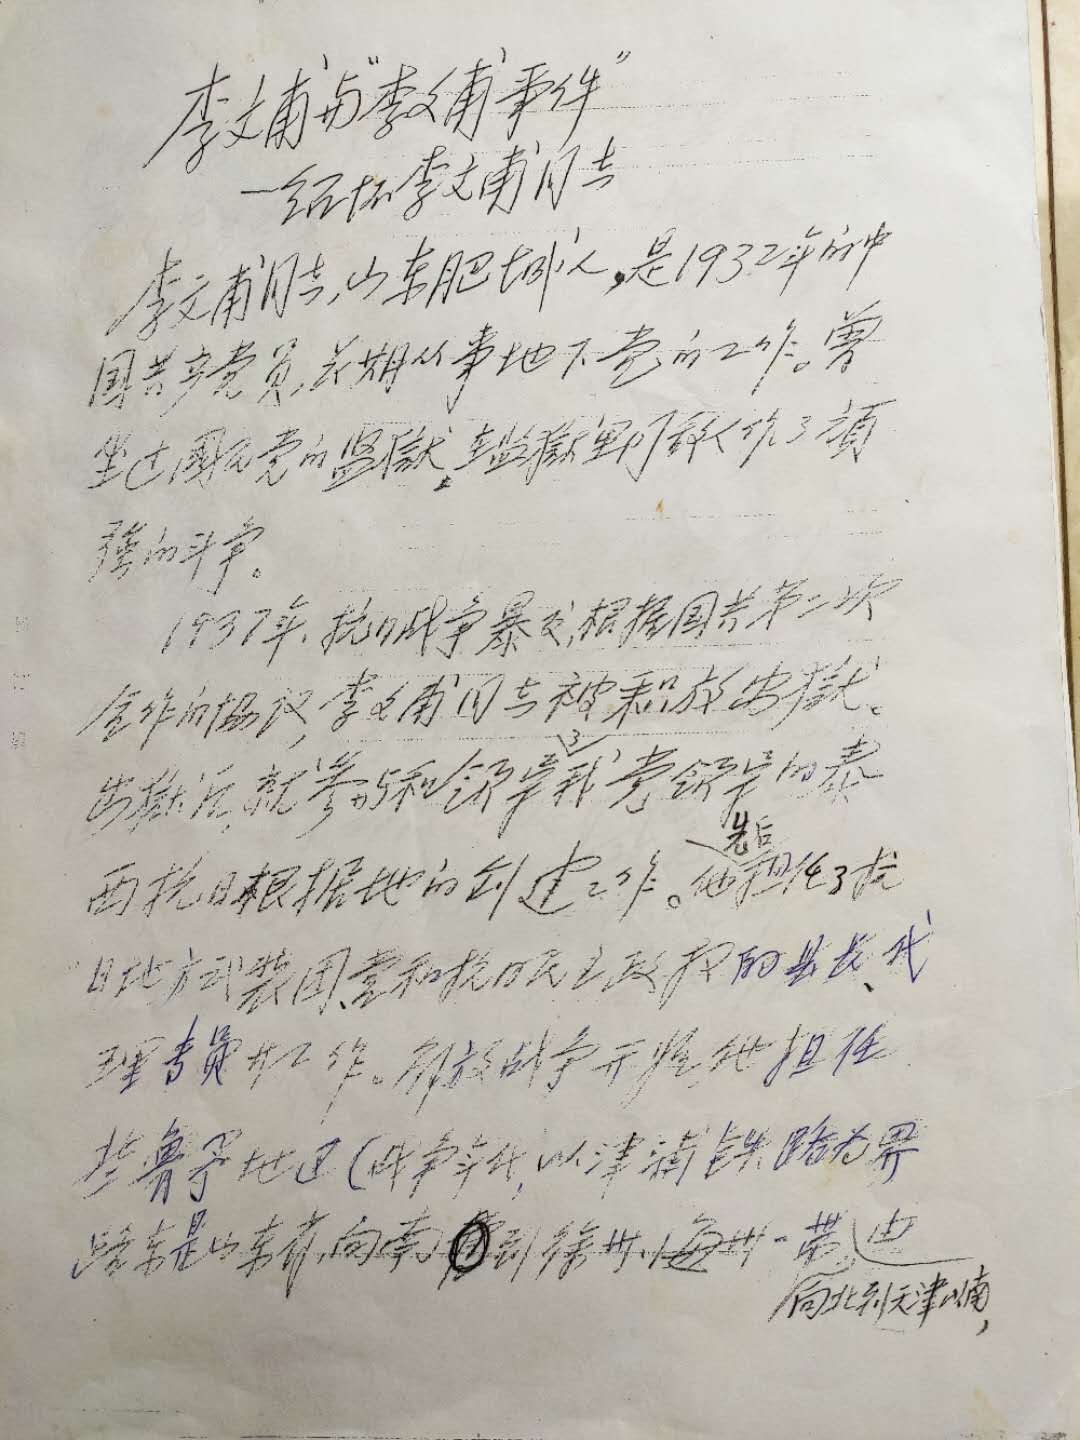 李文甫与“李文甫事件”
—纪怀李文甫同志
李文甫同志，山东肥城人，是1932年的中
国共产党员，长期从事地下党的工作。曾
坐过国民党的监獄。在监獄里同敌人作了頑
強的斗争。
1937年、抗日战争暴发，根据国共第二次
合作的協议，李文甫同志被释放出獄。
出獄后，就参与和領导了我党領导的泰
西抗日根据地的创建工作。他先后担任了抗
日地方武装团、党和抗日民主政权的县长、代
理专员等工作。解放战争开始，他担任
冀鲁予地区（战争年代，以津浦铁路为界
路东是山东省，向南到徐州、海州一带，
向北到天津以南，